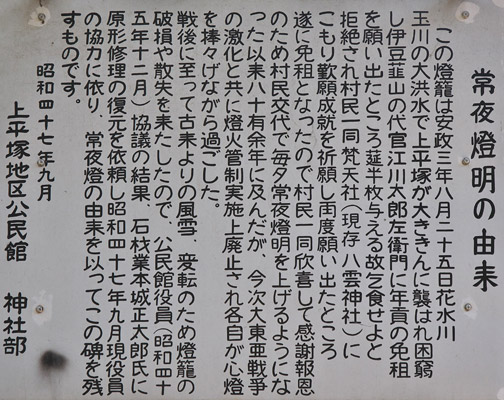 常夜燈明の由来
この燈籠は安政三年八月二十五日花水川
玉川の大洪水で上平塚が大ききんに襲はれ困窮
し伊豆韮山の代官江川太郎左衛門に年貢の免租
を願い出たところ莚半枚与える故乞食せよと
拒絶され村民一同梵天社(現存八雲神社)に
こもり歎願成就を祈願し両度願い出たところ
遂に免租となったので村民一同欣喜して感謝報恩
のため村民交代で毎夕常夜燈明を上げるようにな
った以来八十有余年に及んだが、今次大東亜戦争
の激化と共に燈火管制実施上廃止され各自が心燈
を捧々げながら過ごした。
戦後に至って古来よりの風雪、変転のため燈籠の
破損や散失を来たしたので、公民館役員(昭和四十
五年十二月)協議の結果、石材業本城正太郎氏に
原形修理の復元を依頼し昭和四十七年九月現役員
の協力に依り、常夜燈の由来を以ってこの碑を残
すものです。
昭和四十七年九月
上平塚地区公民館 神社部